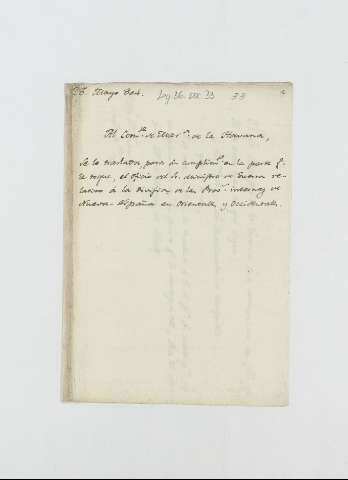 26 Mayo 804. Leg 26. doc 33 33
Al Com.te de Mar.a de la Havana,
Se le traslada, para su cumplim.to en la parte q.e
le toque, el oficio del Sr. Ministro de Guerra re-
lativo á la division de las Prov.s internas de
Nueva España en Orientales y Occidentales.